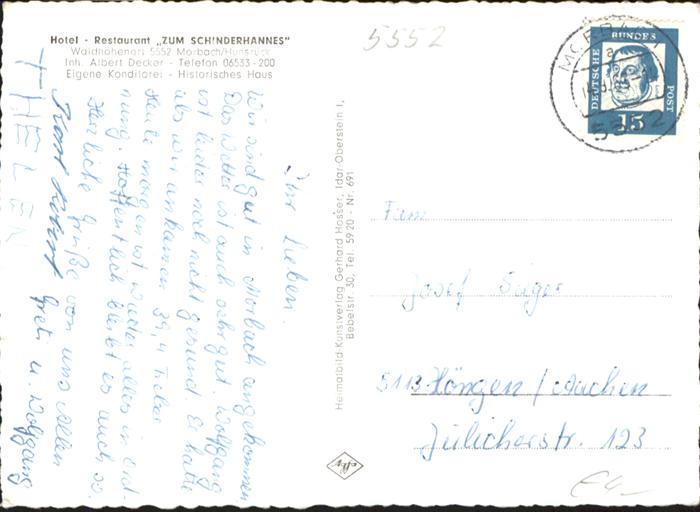 Hotel - Restaurant „ZUM SCHINDERHANNES"
Waldhöhenort 5552 Morbach/Hunsrück
Inh. Albert Decker - Telefon 06533-200
Eigene Konditorei - Historisches Haus
5552
Ihr Lieben.
Wir sind gut in Morbach angekommen
Das Wetter ist auch sehr gut. Wolfgang
ist leider noch nicht gesund. Er hatte
als wir ankamen 39,4 Fieber
Heute morgen ist wieder alles in Ord-
nung. Hoffentlich bleibt es auch so.
Herzliche Grüße von uns allen
Greti u. Wolfgang
THELEN
Heimatbild-Kunstverlag Gerhard Hosser, Idar-Oberstein 1,
Bebelstr. 30, Tel. 5920 - Nr. 691
DEUTSCHE
BUNDES
POST
15
MORBACH
a
5552
Fam
Josef
5113 Höngen / Aachen
Jülicherstr. 123